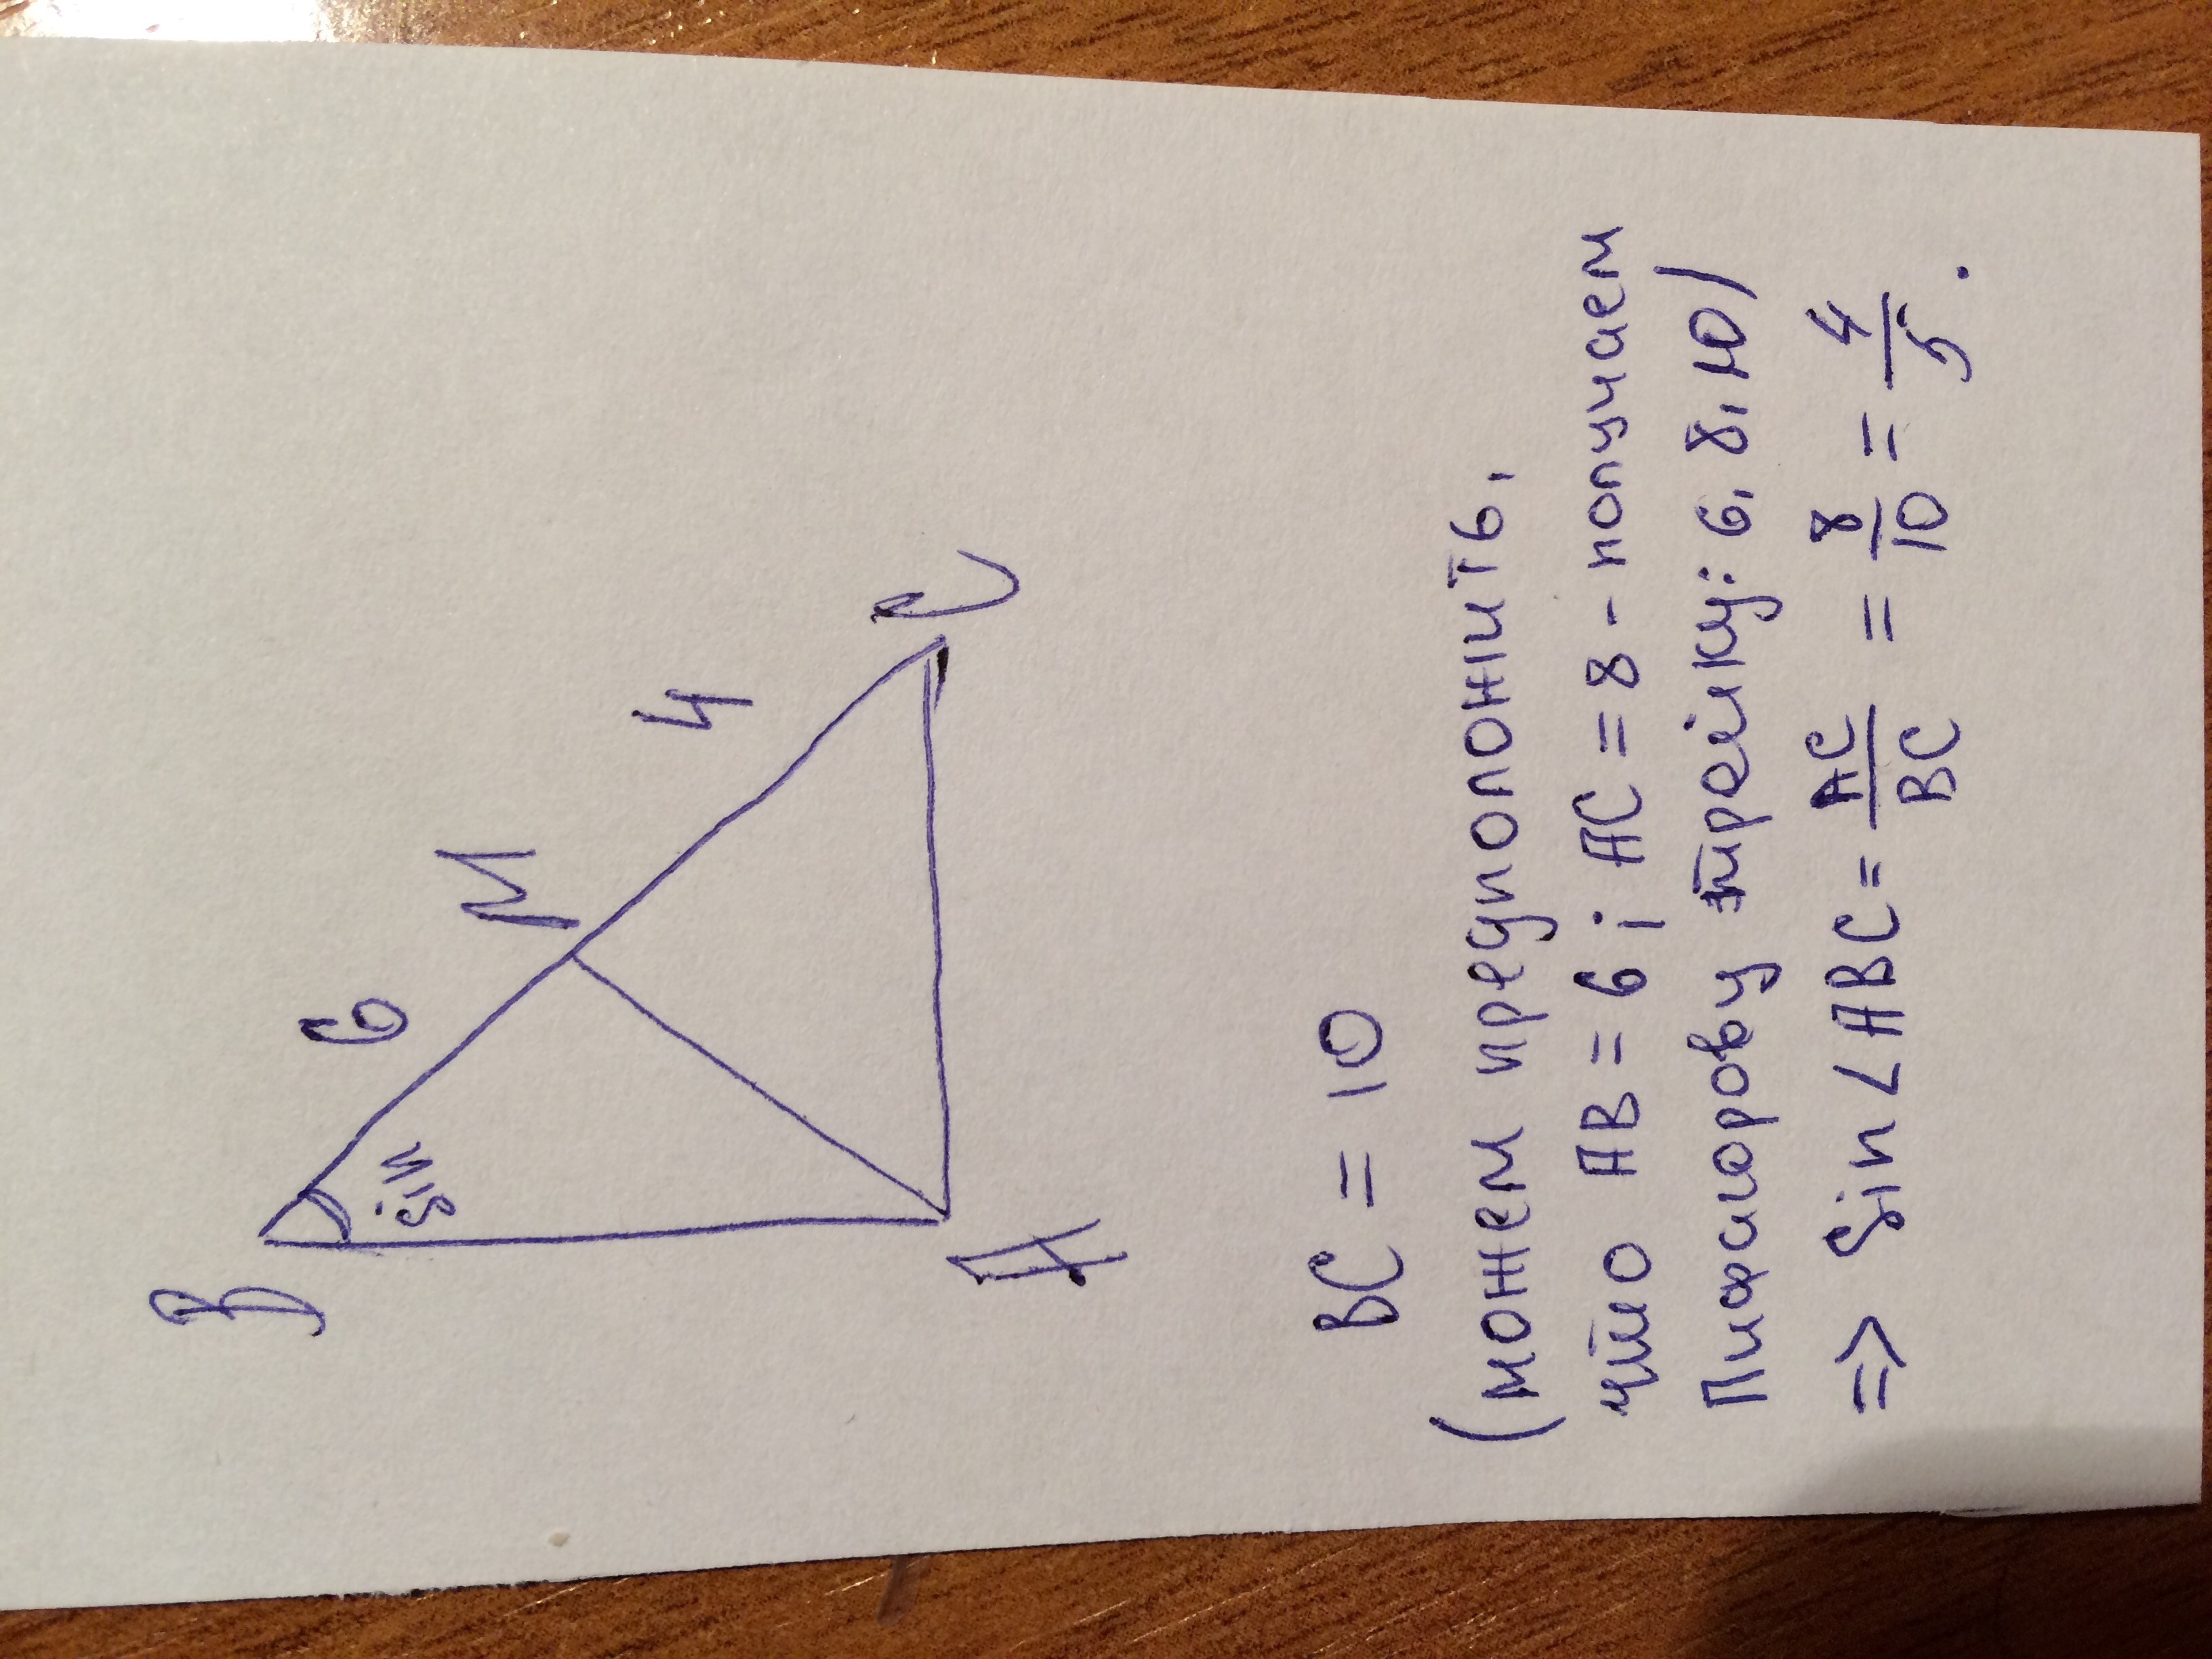 B
6
M
sin
4
A
C
BC = 10
(можем предположить,
что AB = 6 ; AC = 8 - получаем
Пифагорову тройку: 6, 8, 10)
=> Sin∠ABC = AC/BC = 8/10 = 4/5.